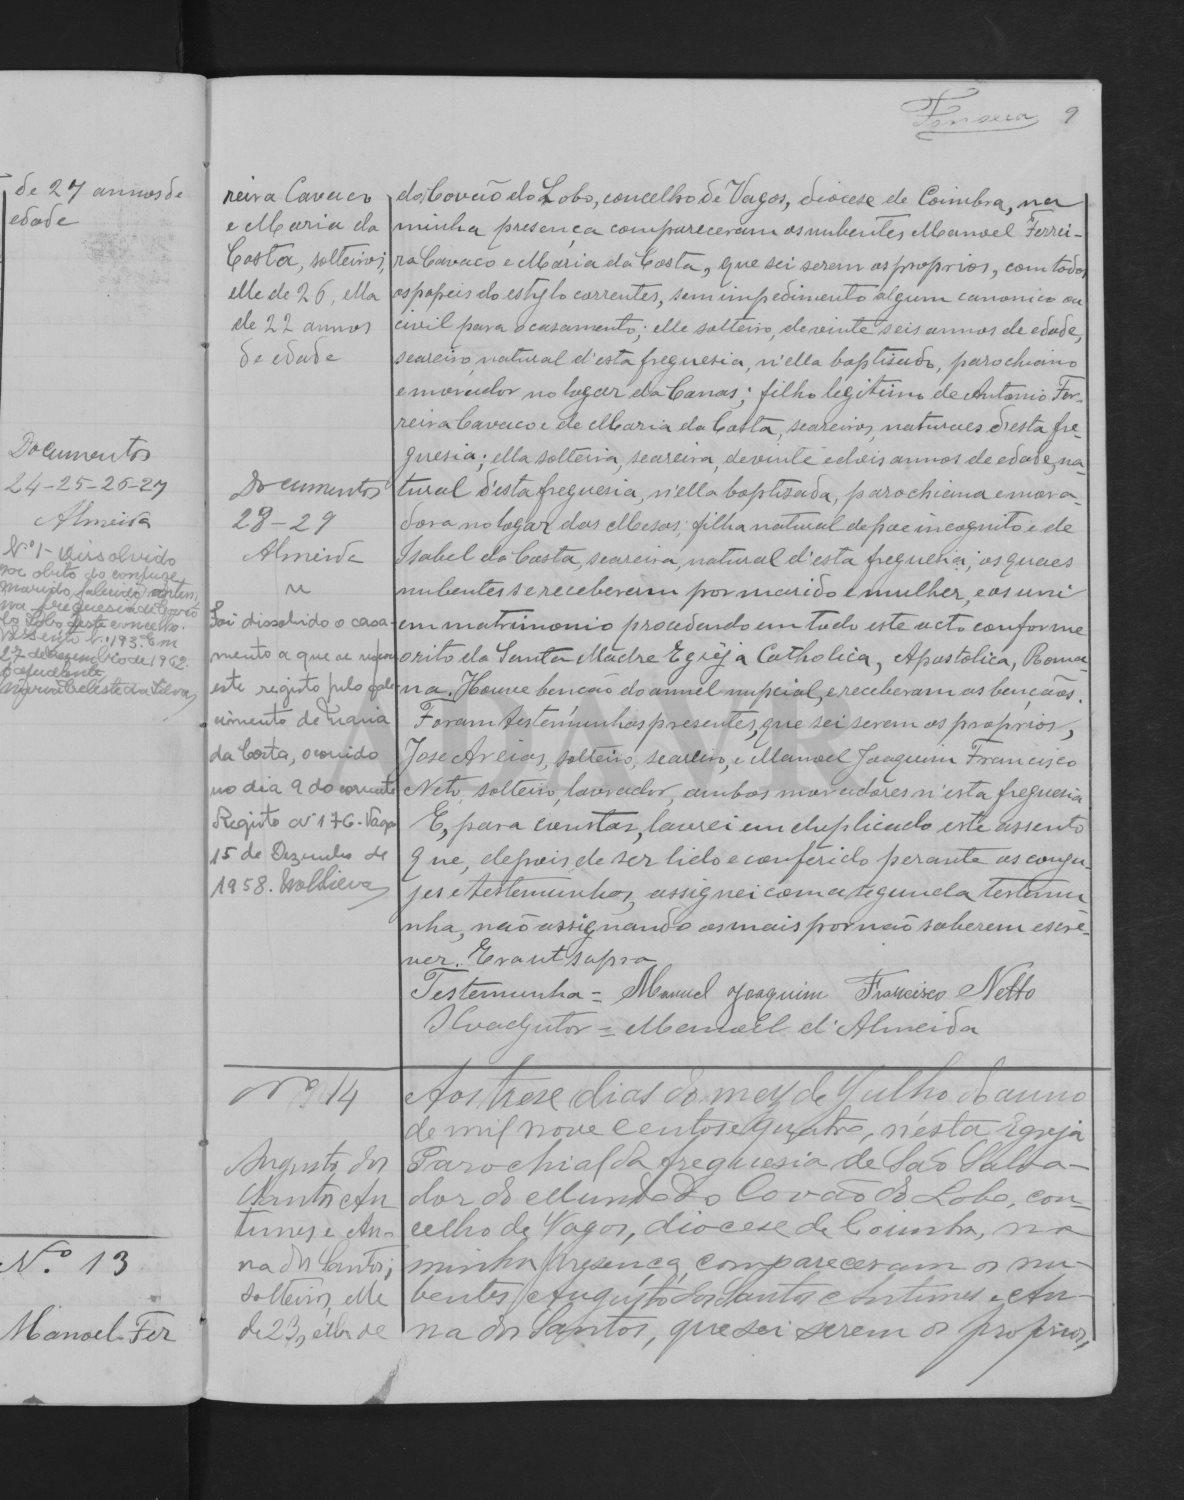 Fonseca 9
de 27 annos de
edade
Documentos
24-25-26-27
Almeida
Nº 1 - Dissolvido
por obito do conjuge
marido, falecido
na freguesia de Covão
do Lobo deste concelho.
Assento n.º 193. Em
27 de Dezembro de 1962.
O ajudante,
Maria Celeste da Silva
N.º 13
Manoel Fer
reira Cavaco
e Maria da
Costa, solteiros,
elle de 26, ella
de 22 annos
de edade
Documentos
28-29
Almeida
Foi dissolvido o casa-
mento a que se refere
este registo pelo fale
cimento de Maria
da Costa, ocorrido
no dia 9 do corrente
Registo nº 176. Vagos
15 de Dezembro de
1958.
do Covão do Lobo, concelho de Vagos, diocese de Coimbra, na
minha presença compareceram os nubentes Manoel Ferrei-
ra Cavaco e Maria da Costa, que sei serem os proprios, com todos
os papeis do estylo correntes, sem impedimento algum canonico ou
civil para o casamento; elle solteiro, de vinte seis annos de edade,
seareiro, natural d'esta freguesia, n'ella baptisado, parochiano
e morador no logar da Canas; filho legitimo de Antonio Fer-
reira Cavaco e de Maria da Costa, seareiros, naturaes d'esta fre-
guesia; ella solteira, seareira, de vinte e dois annos de edade, na-
tural d'esta freguesia, n'ella baptisada, parochiana e mora-
dora no logar das Mesas; filha natural de pae incognito e de
Isabel da Costa, seareira, natural d'esta freguesia; os quaes
nubentes se receberam por marido e mulher, e os uni
em matrimonio procedendo em tudo este acto conforme
o rito da Santa Madre Egreja Catholica, Apostolica, Roma-
na. Houve benção do annel nupcial, e receberam as bençãos.
Foram testemunhas presentes, que sei serem os proprios,
Jose Areias, solteiro, seareiro, e Manoel Joaquim Francisco
Neto, solteiro, lavrador, ambos moradores n'esta freguesia
E, para constar, lavrei em duplicado este assento
que, depois de ser lido e conferido perante os conju-
jes e testemunhas, assignei com a segunda testemu-
nha, não assignando os mais por não saberem escre-
ver. Era ut supra
Testemunha = Manuel Joaquim Francisco Netto
O Coadjutor = Manoel d'Almeida
ADAVR
Nº 14
Augusto dos
Santos An
tunes e An-
na dos Santos,
solteiros, elle
de 23, ella de
Aos trese dias do mez de Julho do anno
de mil nove centos e quatro, n'esta Egreja
Parochial da freguesia de São Salva-
dor do Mundo do Covão do Lobo, con-
celho de Vagos, diocese de Coimbra, na
minha presença compareceram os nu-
bentes Augusto dos Santos Antunes e An-
na dos Santos, que sei serem os proprios,